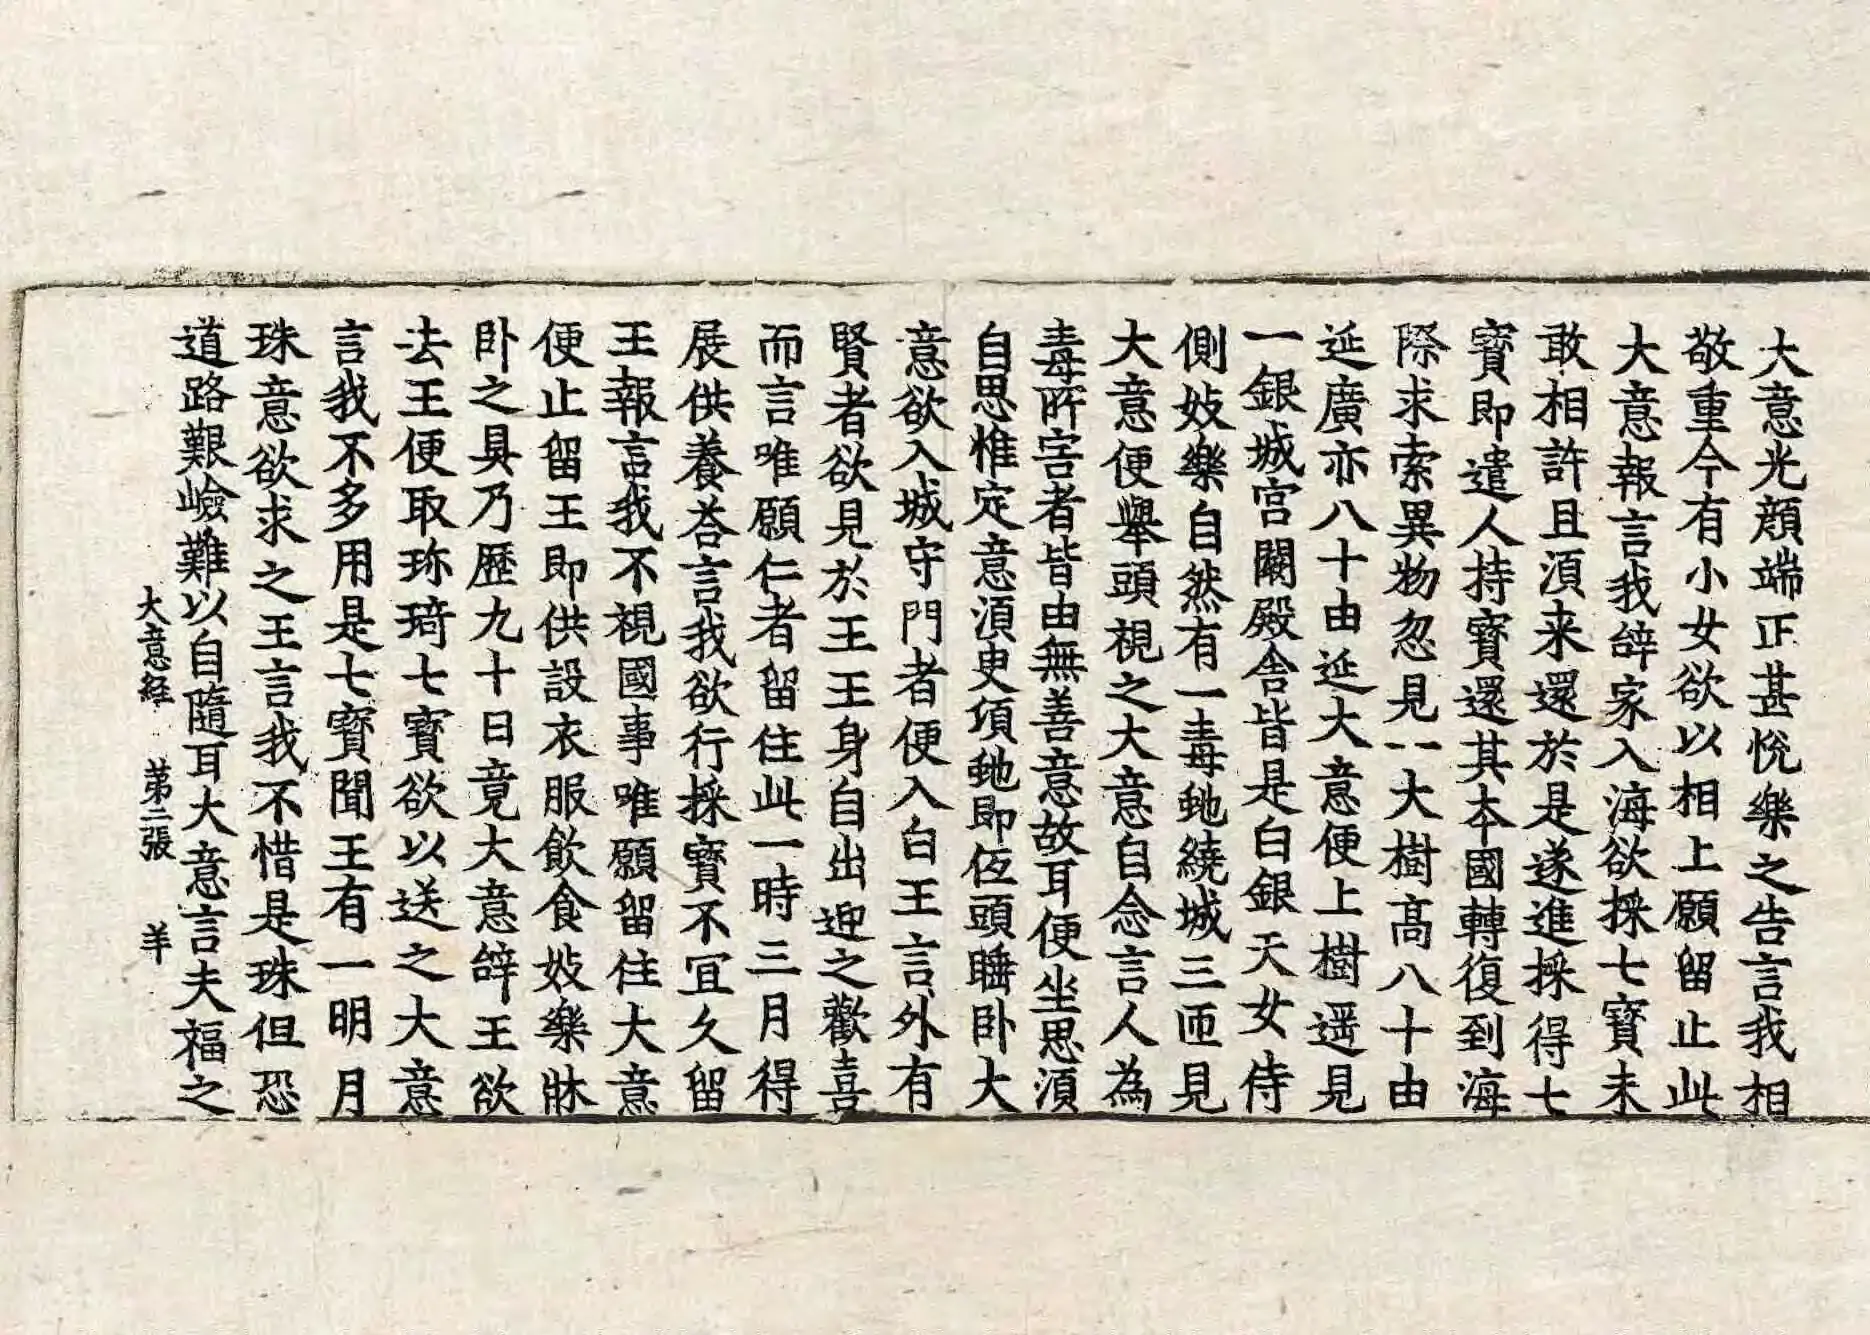 大意光顔端正甚恱樂之告言我相
敬重今有小女欲以相上願留止此
大意報言我辝家入海欲採七寳未
敢相許且湏来還於是遂進採得七
寳即遣人持寳還其夲國轉復到海
際求索異物忽見一大樹髙八十由
延廣亦八十由延大意便上樹遥見
一銀城宫闕殿舎皆是白銀天女侍
側妓樂自然有一毒虵繞城三匝見
大意便舉頭視之大意自念言人為
毒所害者皆由無善意故耳便坐思湏
自思惟定意湏臾頃虵即伍頭睡卧大
意欲入城守門者便入白王言外有
賢者欲見於王王身自出迎之歡喜
而言唯願仁者留住此一時三月得
展供養荅言我欲行採寳不冝久留
王報言我不視國事唯願留住大意
便止留王即供設衣服飲食妓樂牀
卧之具乃歷九十日竟大意辝王欲
去王便取珎琦七寳欲以送之大意
言我不多用是七寳聞王有一明月
珠意欲求之王言我不惜是珠但恐
道路艱嶮難以自隨耳大意言夫福之
大意經　第二張　羊